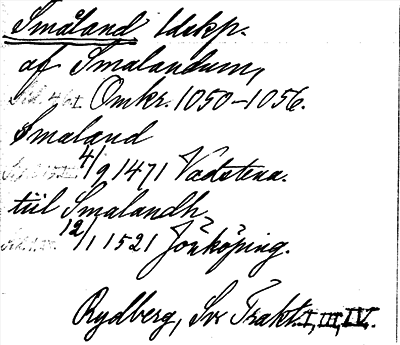 Småland ldskp.
af Smalandum,
Omkr. 1050–1056.
Smaland
4/9 1471 Vadstena.
tiil Smalandh
12/1 1521 Jönköping.
Rydberg, Sv Trakt. I, III, IV.